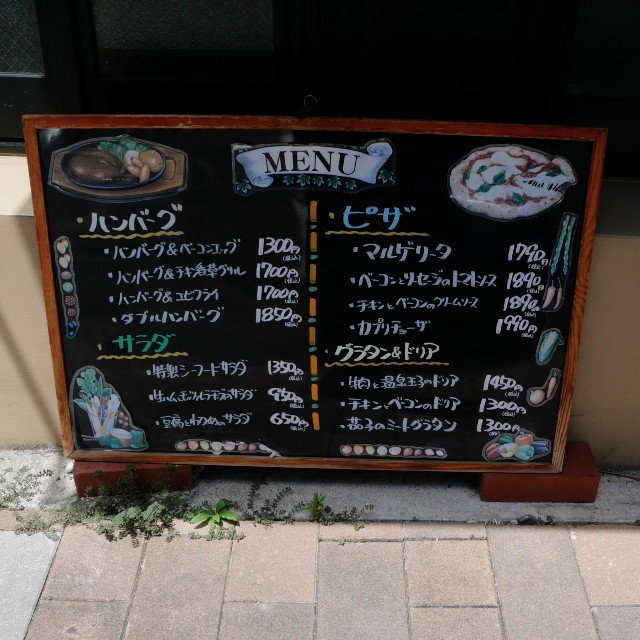 MENU
ハンバーグ
・ハンバーグ&ベーコンエッグ 1300円(税込)
・ハンバーグ&チキン香草グリル 1700円(税込)
・ハンバーグ&エビフライ 1700円(税込)
・ダブルハンバーグ 1850円(税込)
サラダ
・特製シーフードサラダ 1350円(税込)
・生ハムとポテトサラダ 950円(税込)
・豆腐とわかめのサラダ 650円(税込)
ピザ
・マルゲリータ 1790円(税込)
・ベーコンとソーセージのトマトソース 1890円(税込)
・チキンとベーコンのクリームソース 1890円(税込)
・カプリチョーザ 1990円(税込)
グラタン&ドリア
・牛肉と温泉玉子のドリア 1450円(税込)
・チキンとベーコンのドリア 1300円(税込)
・茄子のミートグラタン 1300円(税込)